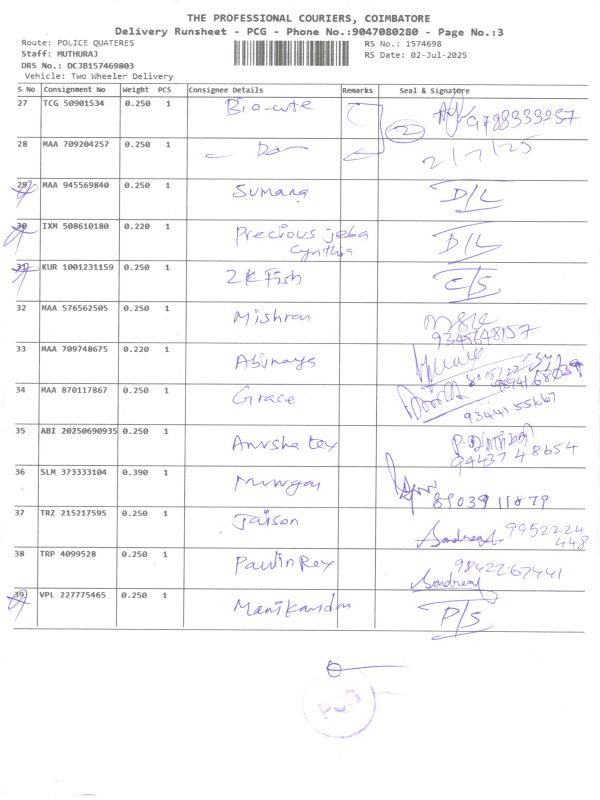 THE PROFESSIONAL COURIERS, COIMBATORE
Delivery Runsheet - PCG - Phone No.:9047080280 - Page No.:3
Route: POLICE QUATERES
RS No.: 1574698
Staff: MUTHURAJ
RS Date: 02-Jul-2025
DRS No.: DCJB157469803
Vehicle: Two Wheeler Delivery
S No Consignment No Weight PCS Consignee Details Remarks Seal & Signature
27 TCG 50901534 0.250 1 Bio-cute 2 9788333257
28 MAA 709204257 0.250 1 2/7/25
29 MAA 945569840 0.250 1 Sumana D/L
30 IXM 508610180 0.220 1 Precious jeba D/L
Cynthia
31 KUR 1001231159 0.250 1 2K Fish C/S
32 MAA 576562505 0.250 1 Mishran
9345648157
33 MAA 709748675 0.220 1 Abinaya
34 MAA 870117867 0.250 1 Grace 9344155667
35 ABI 20250690935 0.250 1 Anusha tex
9443748654
36 SLM 373333104 0.390 1 Murugan 8903911879
37 TRZ 215217595 0.250 1 Jaison 9952224
448
38 TRP 4099528 0.250 1 Paulin Rey 9842267441
39 VPL 227775465 0.250 1 Manikandan P/S
PCG